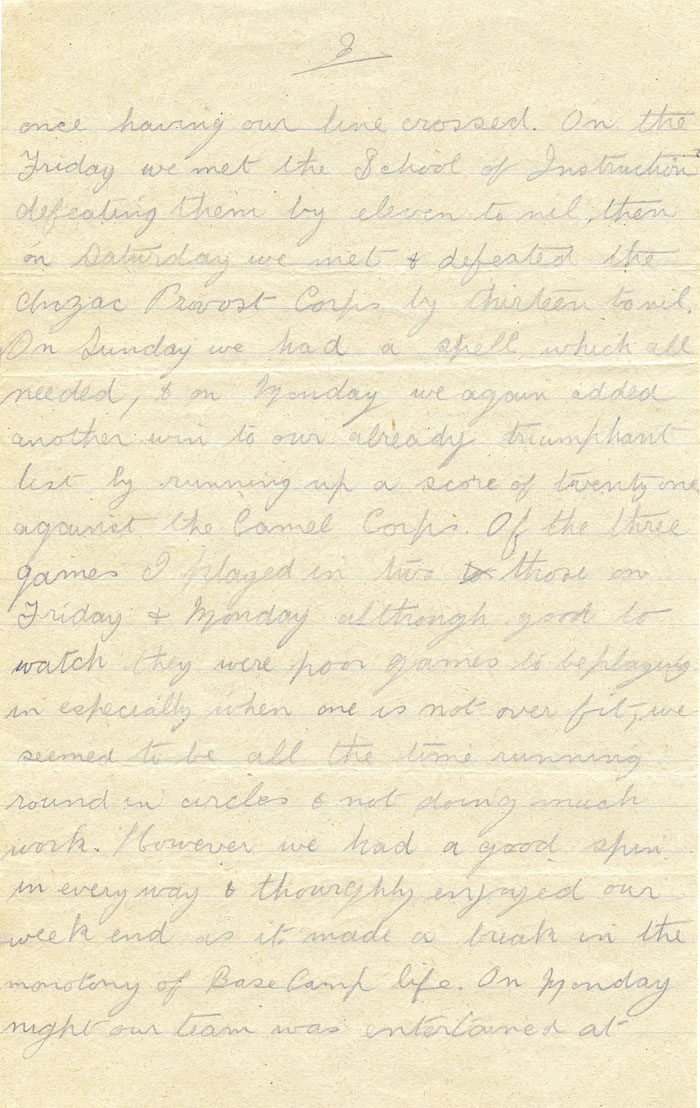 2
once having our line crossed. On the
Friday we met the School of Instruction
defeating them by eleven to nil, then
on Saturday we met & defeated the
Anzac Provost Corps by thirteen to nil.
On Sunday we had a spell, which all
needed, & on Monday we again added
another win to our already triumphant
list by running up a score of twenty one
against the Camel Corps. Of the three
games I played in two those on
Friday & Monday although good to
watch they were poor games to be playing
in especially when one is not over fit, we
seemed to be all the time running
round in circles & not doing much
work. However we had a good spin
in every way & thourghly enjoyed our
week end as it made a break in the
monotony of Base Camp life. On Monday
night our team was entertained at